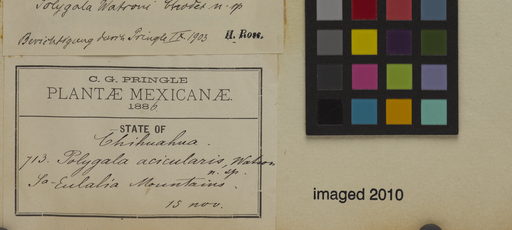 Polygala Watsoni Chodat n. sp
Berichtigung durch Pringle IX. 1903 H. Ross.
C. G. PRINGLE
PLANTÆ MEXICANÆ.
1886
STATE OF
Chihuahua.
713. Polygala acicularis, Watson
n. sp.
Sa Eulalia Mountains.
15 nov.
imaged 2010